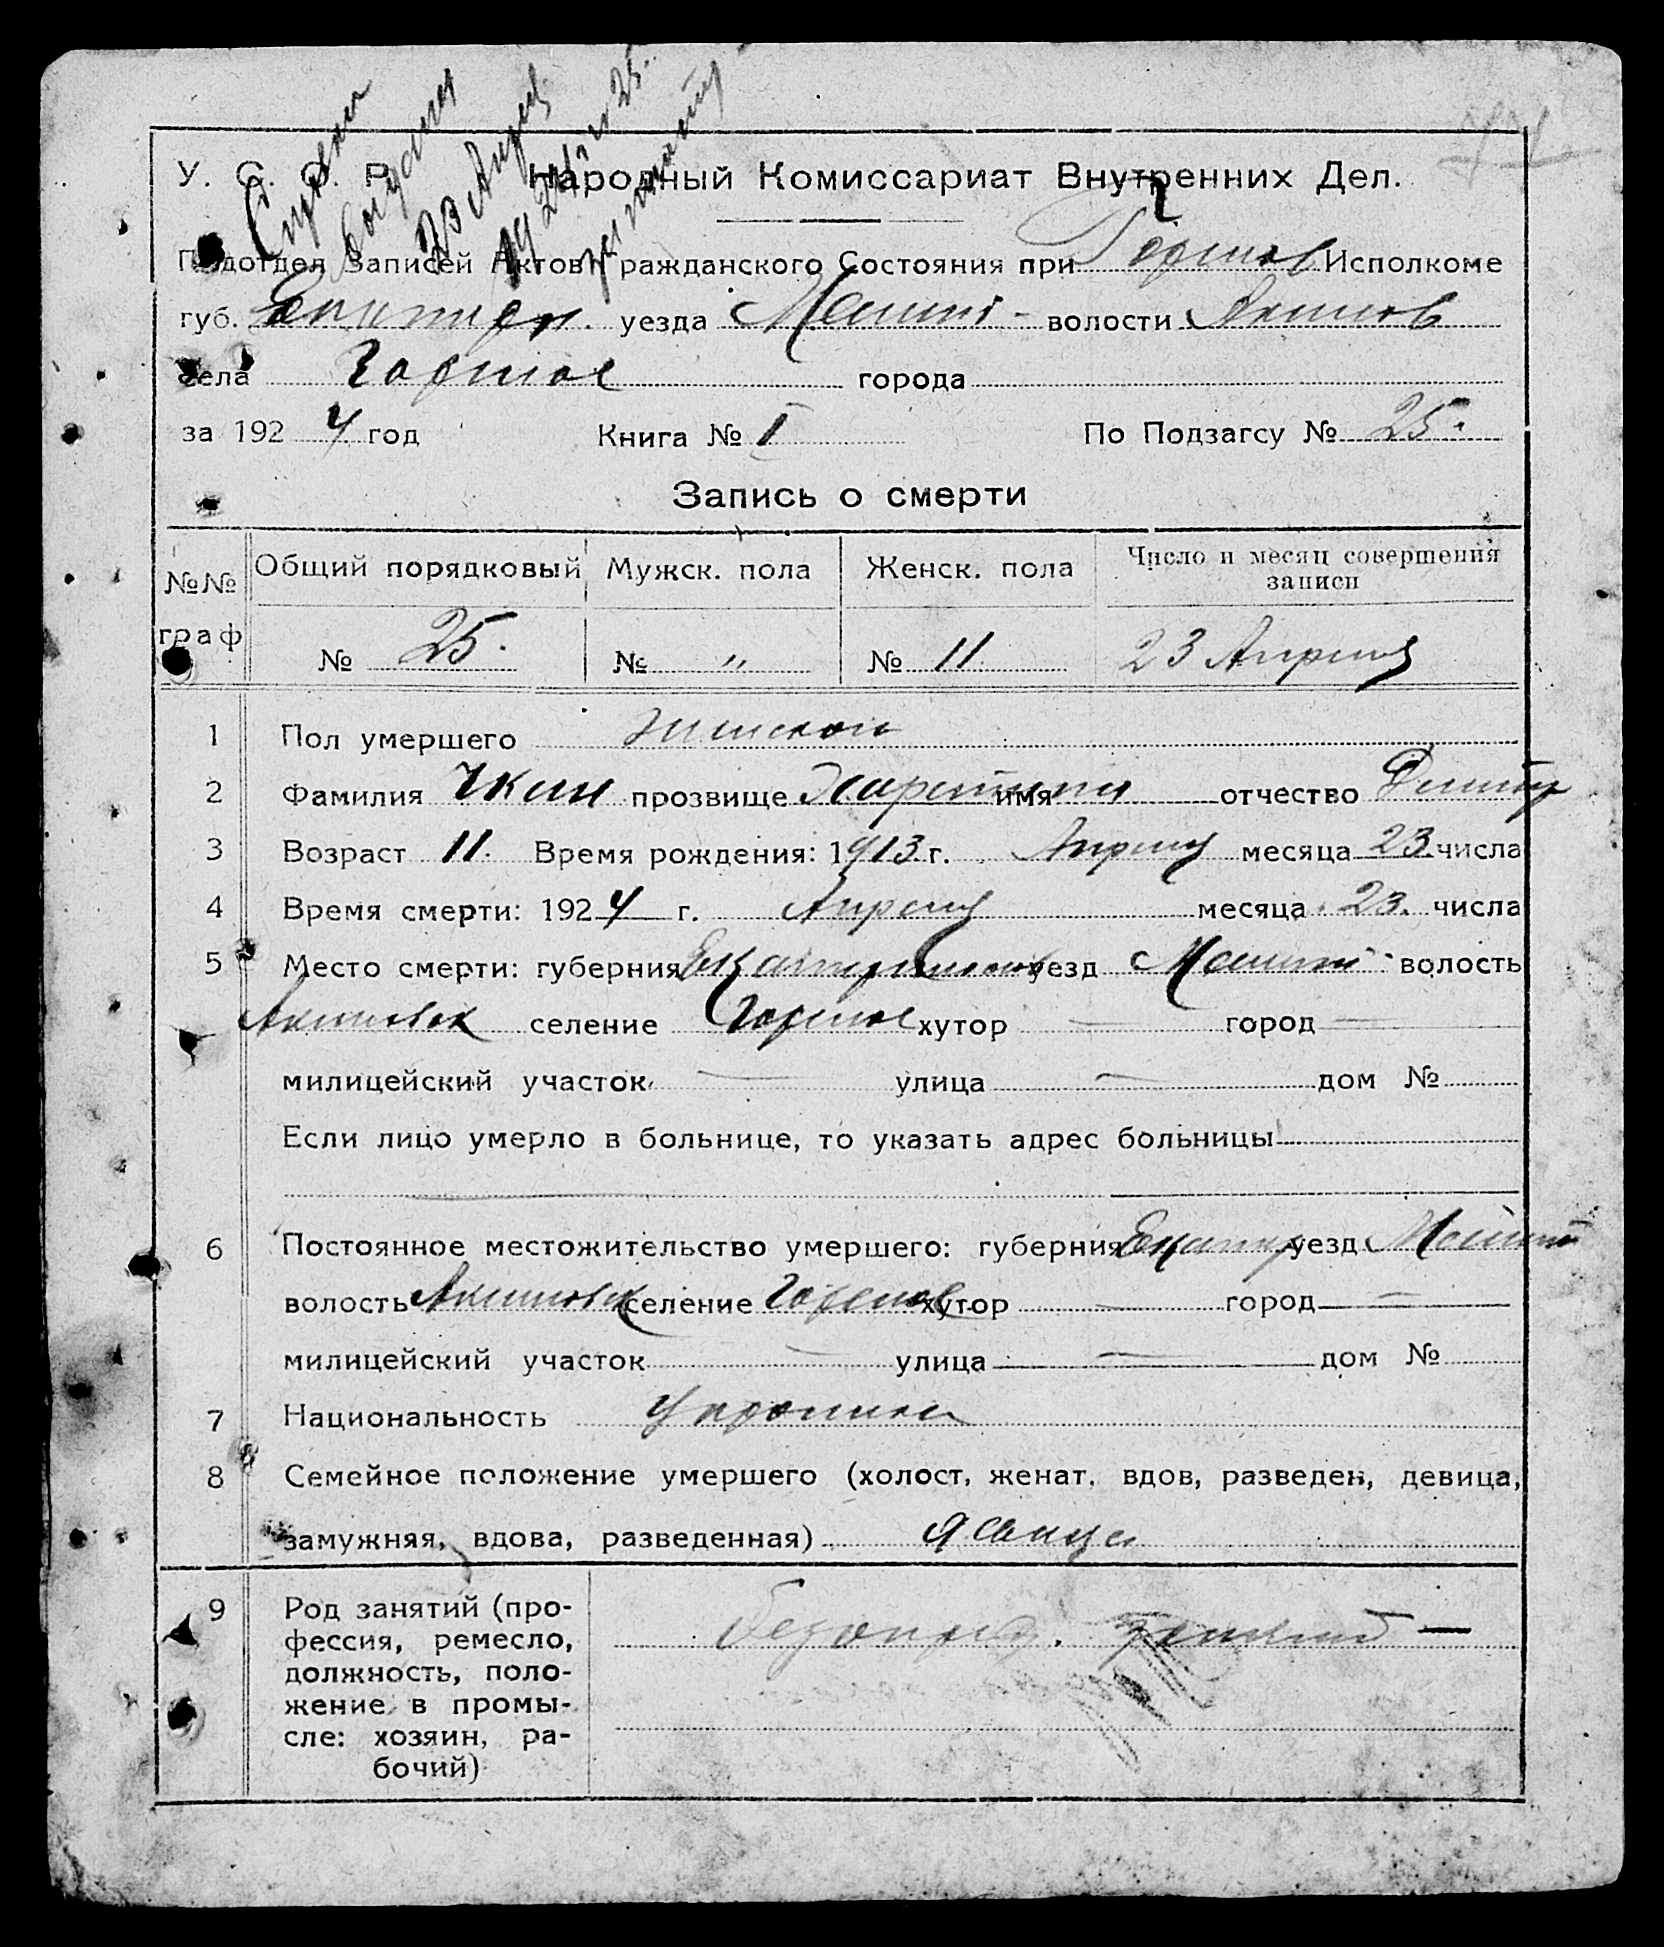 Справка
выдана
23 Апреля
1924 г. № 25.
У. С. С. Р. Народный Комиссариат Внутренних Дел.
Подотдел Записей Актов Гражданского Состояния при Исполкоме
губ. Екатер. уезда волости Акимов
села города
за 1924 год Книга № I По Подзагсу № 25.
Запись о смерти
№№ граф Общий порядковый Мужск. пола Женск. пола Число и месяц совершения записи
№ 25. № " № 11 23 Апреля
1 Пол умершего женской
2 Фамилия прозвище имя отчество Дмитр
3 Возраст 11. Время рождения: 1913 г. Апреля месяца 23 числа
4 Время смерти: 1924 г. Апреля месяца 23. числа
5 Место смерти: губерния Екатеринослав уезд волость
Акимовск селение хутор — город —
милицейский участок — улица — дом №
Если лицо умерло в больнице, то указать адрес больницы
6 Постоянное местожительство умершего: губерния Екатер уезд
волость Акимовск селение хутор — город —
милицейский участок — улица — дом №
7 Национальность
8 Семейное положение умершего (холост, женат, вдов, разведен, девица,
замужняя, вдова, разведенная) девица
9 Род занятий (про-
фессия, ремесло,
должность, поло-
жение в промы-
сле: хозяин, ра-
бочий)